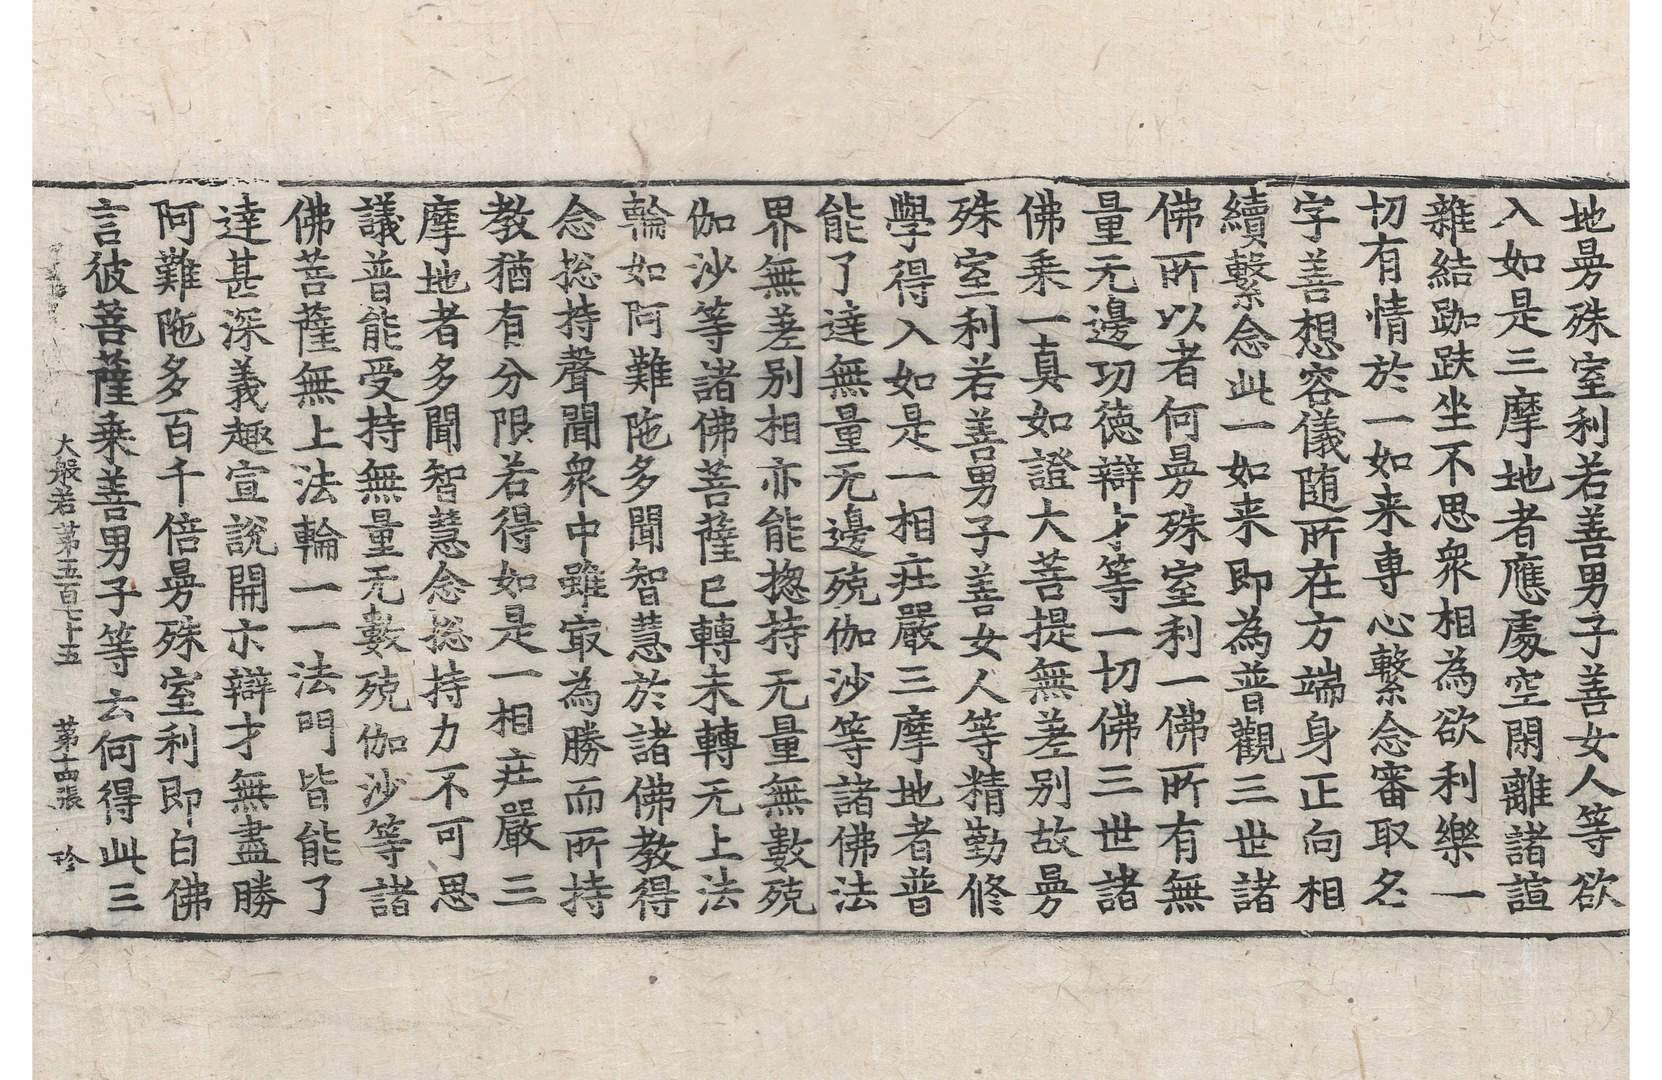 地曼殊室利若善男子善女人等欲
入如是三摩地者應處空閑離諸諠
雜結跏趺坐不思衆相為欲利樂一
切有情於一如来專心繫念審取名
字善想容儀随所在方端身正向相
續繫念此一如来即為普觀三世諸
佛所以者何曼殊室利一佛所有無
量无邊功德辯才等一切佛三世諸
佛乗一真如證大菩提無差别故曼
殊室利若善男子善女人等精勤修
學得入如是一相莊嚴三摩地者普
能了達無量无邊殑伽沙等諸佛法
界無差别相亦能揔持无量無數殑
伽沙等諸佛菩薩已轉未轉无上法
輪如阿難陁多聞智慧於諸佛教得
念揔持聲聞衆中雖冣為勝而所持
教猶有分限若得如是一相莊嚴三
摩地者多聞智慧念揔持力不可思
議普能受持無量无數殑伽沙等諸
佛菩薩無上法輪一一法門皆能了
達甚深義趣宣說開示辯才無盡勝
阿難陁多百千倍曼殊室利即白佛
言彼菩薩乗善男子等云何得此三
大般若第五百七十五 第十四張 珎